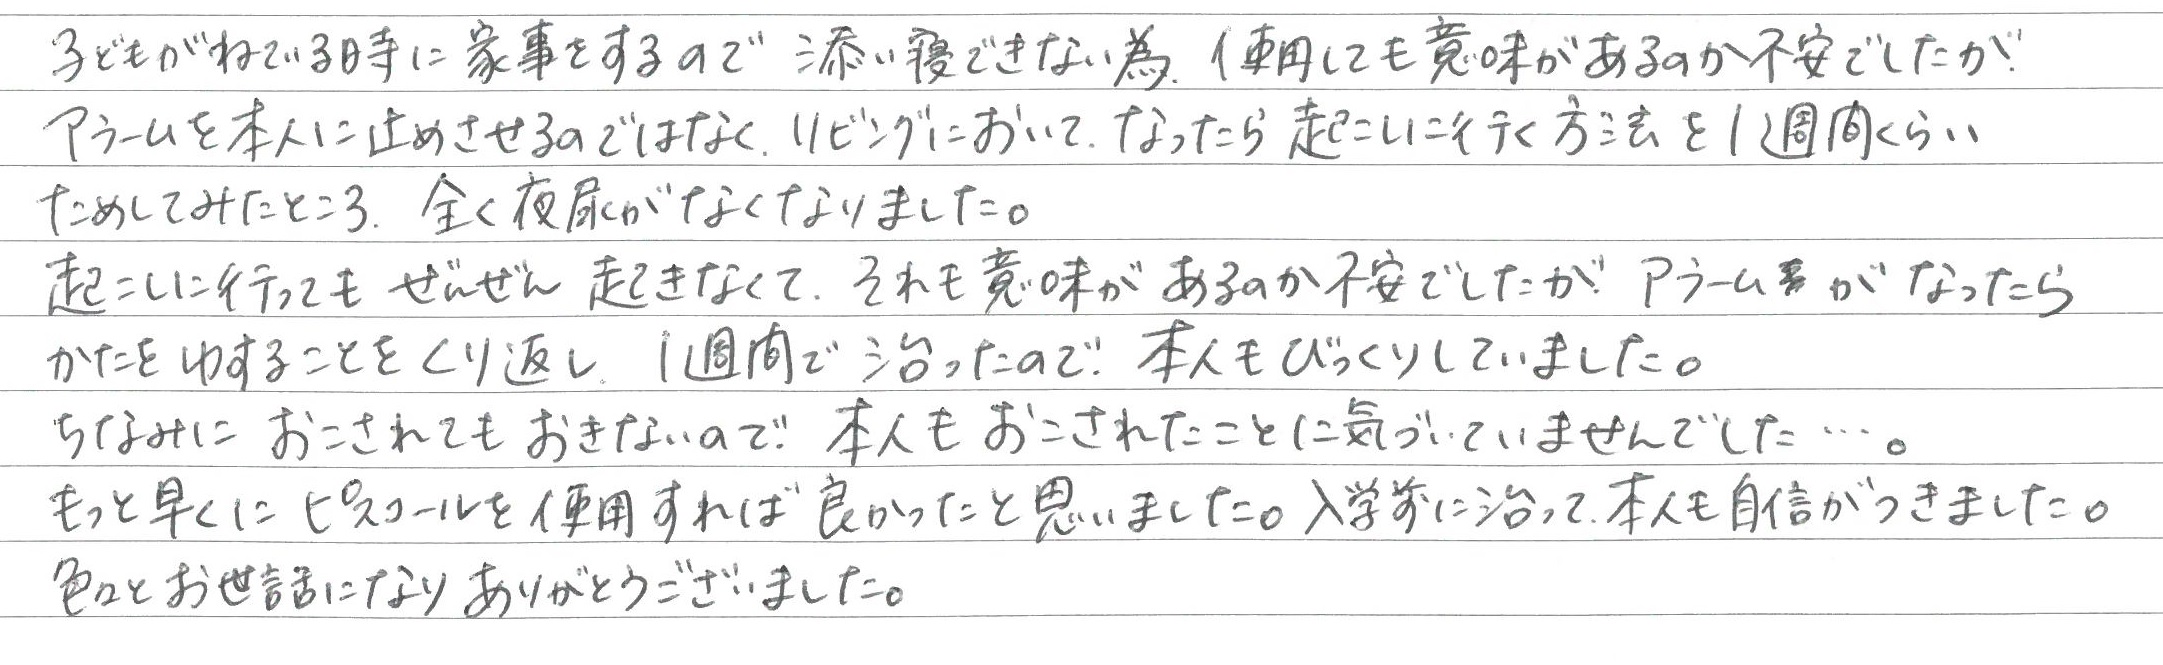 子どもがねている時に家事をするので添い寝できない為、使用しても意味があるのか不安でしたが、
アラームを本人に止めさせるのではなく、リビングにおいて、なったら起こしに行く方法を1週間くらい
ためしてみたところ、全く夜尿がなくなりました。
起こしに行ってもぜんぜん起きなくて、それも意味があるのか不安でしたが、アラームがなったら
かたをゆすることをくり返し、1週間で治ったので、本人もびっくりしていました。
ちなみにおこされてもおきないので、本人もおこされたことに気づいていませんでした…。
もっと早くにピスコールを使用すれば良かったと思いました。入学前に治って、本人も自信がつきました。
色々とお世話になりありがとうございました。